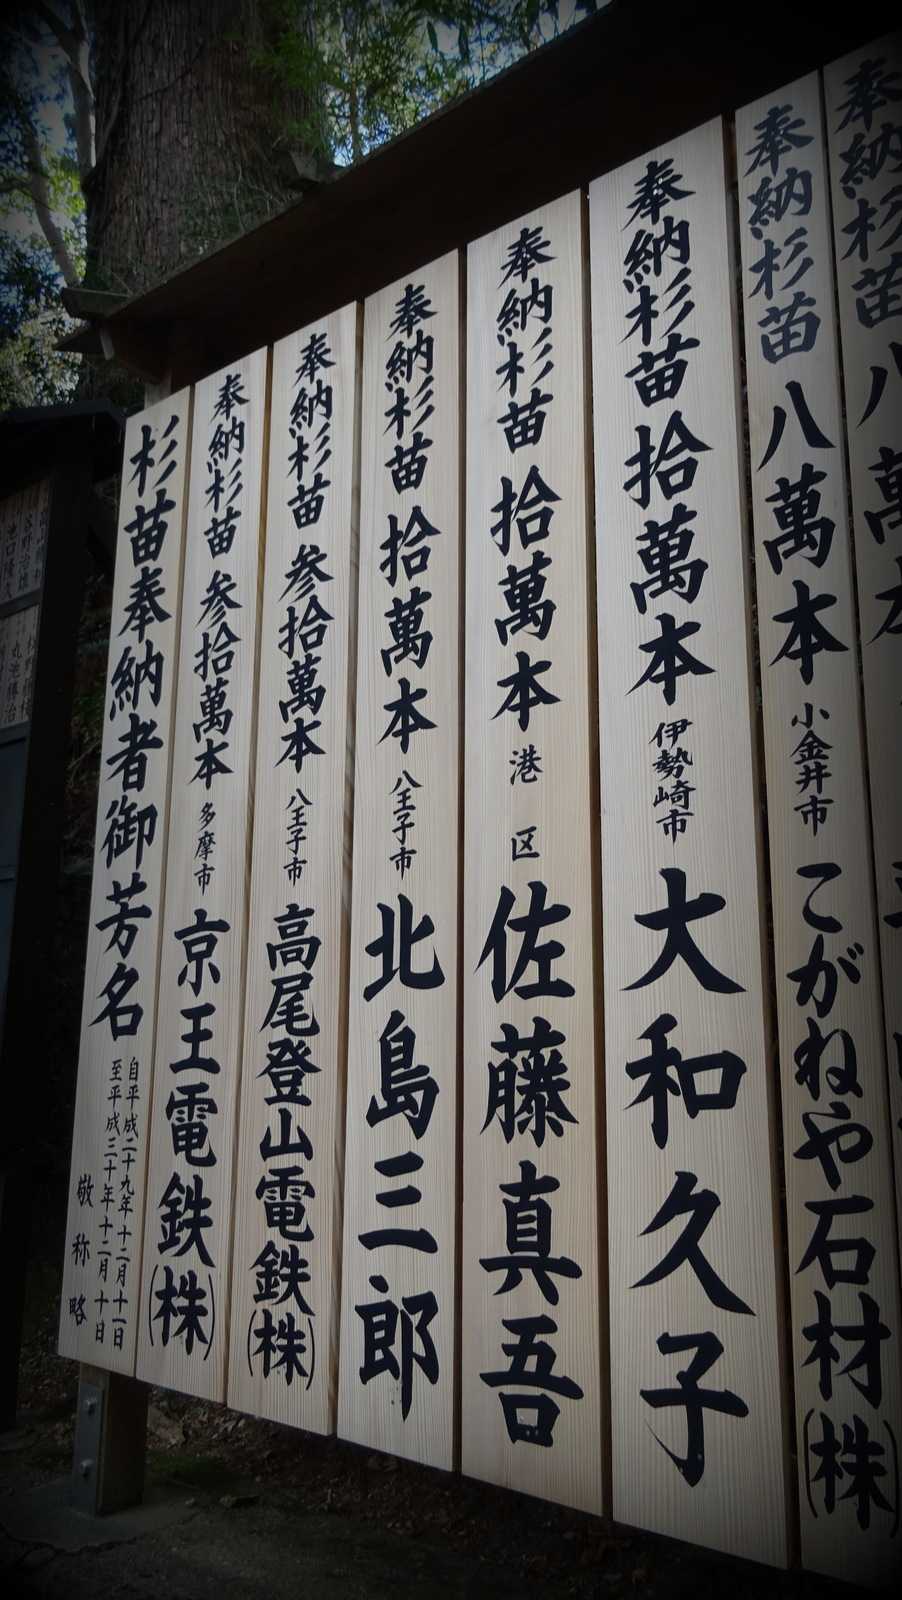 杉苗奉納者御芳名
自平成二十九年十二月十一日
至平成三十年十二月十日
敬称略
奉納杉苗 参拾萬本 多摩市 京王電鉄(株)
奉納杉苗 参拾萬本 八王子市 高尾登山電鉄(株)
奉納杉苗 拾萬本 八王子市 北島三郎
奉納杉苗 拾萬本 港区 佐藤真吾
奉納杉苗 拾萬本 伊勢崎市 大和久子
奉納杉苗 八萬本 小金井市 こがねや石材(株)
奉納杉苗 八萬本